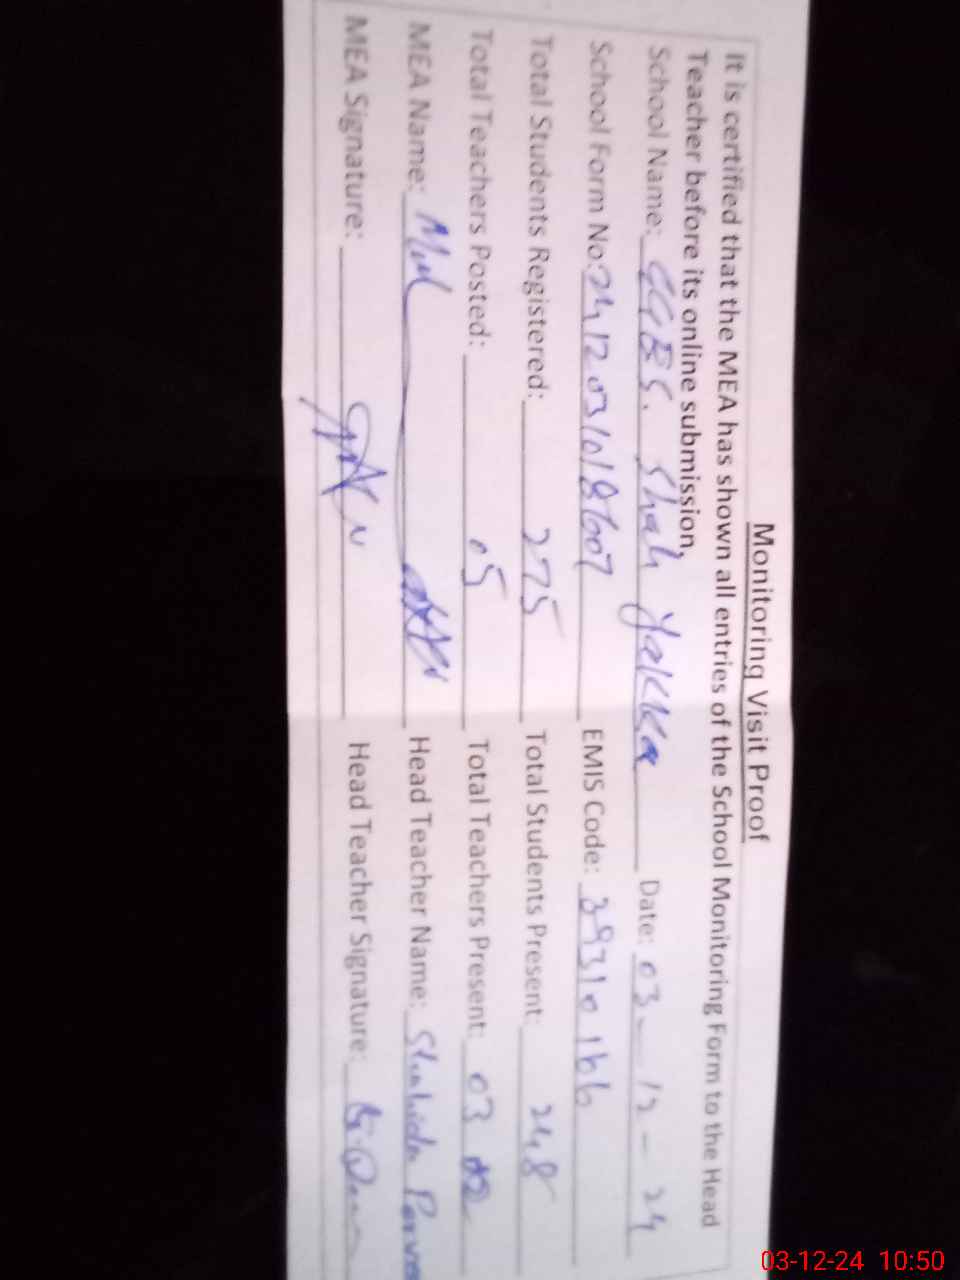 Monitoring Visit Proof
It is certified that the MEA has shown all entries of the School Monitoring Form to the Head
Teacher before its online submission.
School Name: GGBS. Shah Yakka Date: 03-12-24
School Form No: 2412031018607 EMIS Code: 39310166
Total Students Registered: 275 Total Students Present: 248
Total Teachers Posted: 05 Total Teachers Present: 03
MEA Name: Head Teacher Name: Shahida
MEA Signature: Head Teacher Signature:
03-12-24 10:50